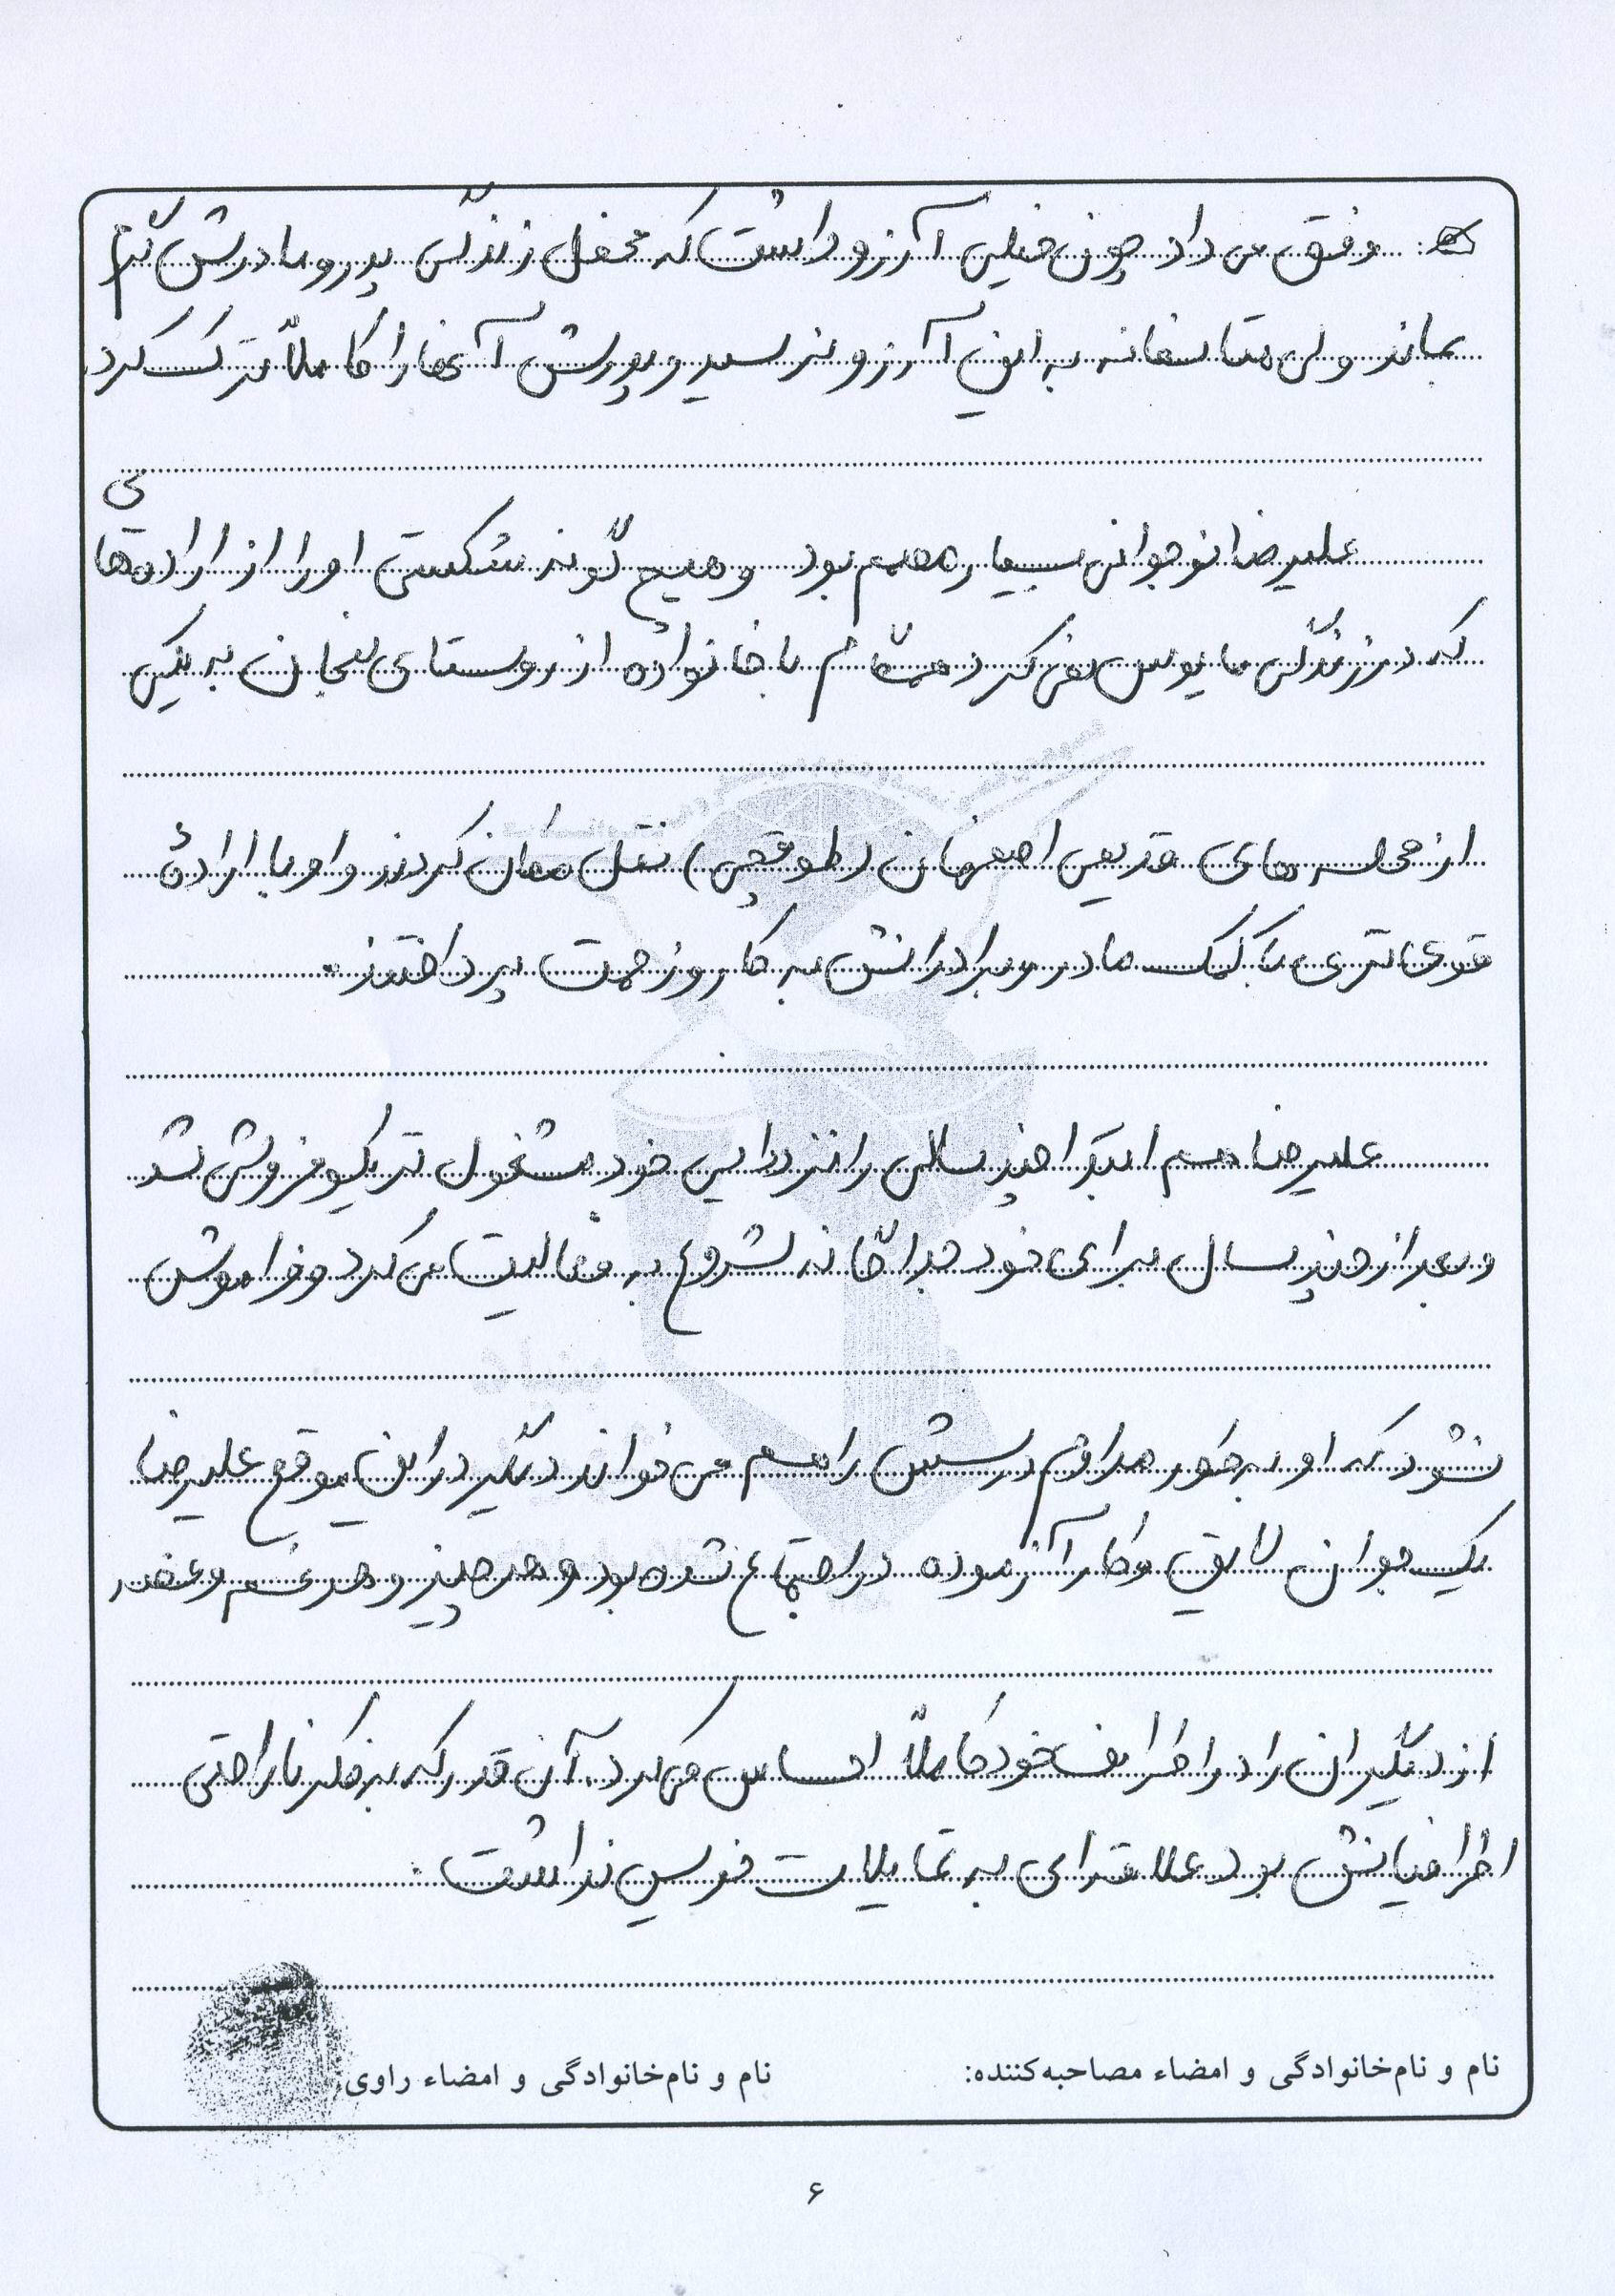 وفق می داد چون خیلی آرزو داشت که محفل زندگی پدر و مادرش گرم
بماند ولی متاسفانه به این آرزو نرسید و پدرش آنها را کاملاً ترک کرد.
علیرضا نوجوانی بسیار مصمم بود و هیچ گونه شکستی او را از اراده‌هائی
که در زندگی مایوس نمی کرد همگام با خانواده از روستای به یکی
از محله های قدیمی اصفهان (طوقچی) نقل مکان کردند و او با ارادهٔ
قوی تری با کمک مادر و برادرانش به کار و زحمت پرداختند.
علیرضا هم ابتدا چند سالی را نزد دایی خود مشغول تریکو فروشی شد
و بعد از چند سال برای خود جداگانه شروع به فعالیت می کرد و فراموش
نشود که او به طور مداوم درسش را هم می خواند دیگر در این موقع علیرضا
یک جوان لایق و کارآزموده در اجتماع شده بود و هر چیز و هر غم و غصه
از دیگران را در اطراف خود کاملاً احساس می کرد. آن قدر که به فکر ناراحتی
اطرافیانش بود علاقه ای به تمایلات نفسی نداشت.
نام و نام‌خانوادگی و امضاء مصاحبه‌کننده:
نام و نام‌خانوادگی و امضاء راوی:
۶